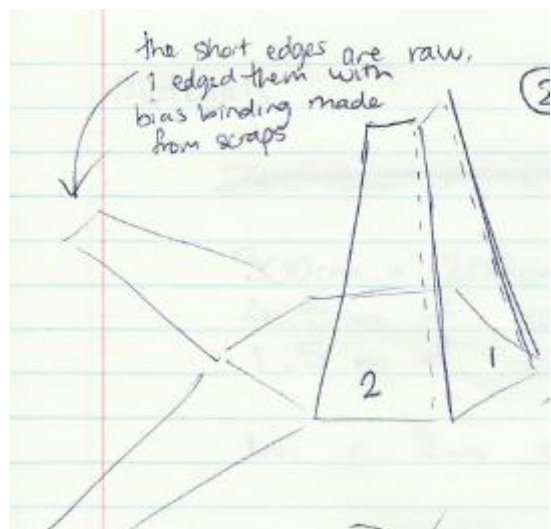 the short edges are raw,
i edged them with
bias binding made
from scraps
2
2
1